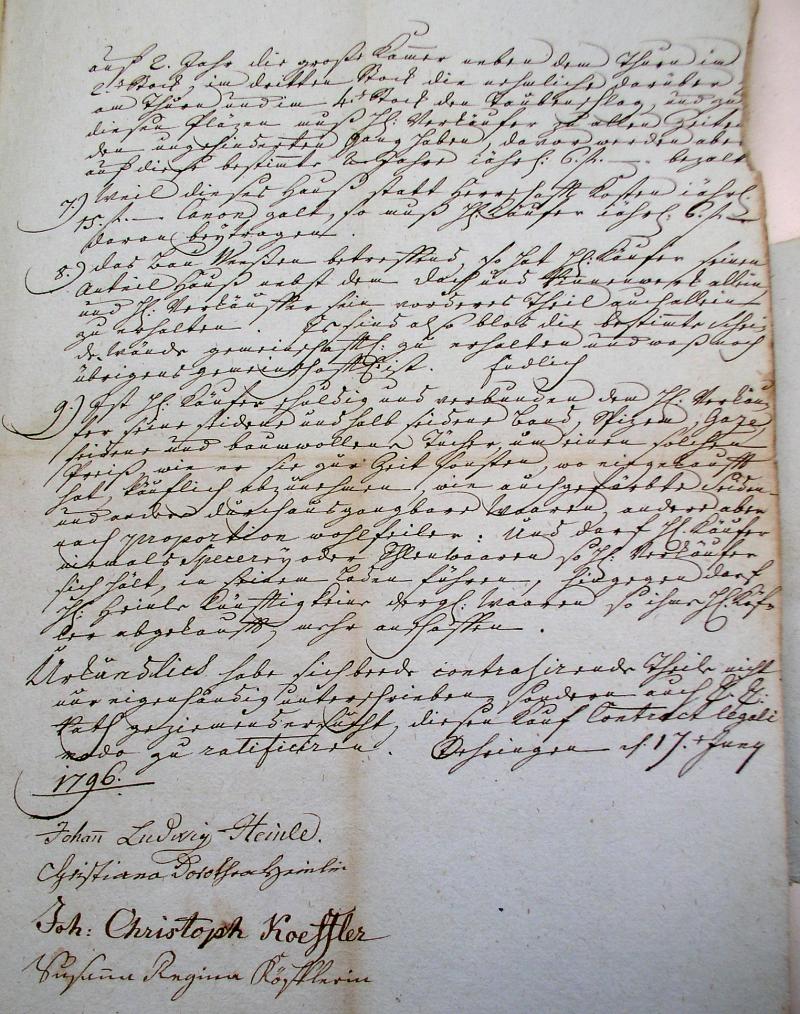 auf 2. Jahr die große Kamer neben dem Thurn im
2.t Stock, im dritten Stock die nehmliche darüber
am Thurn und im 4.t Stock den Taubenschlag, und zu
diesen Pläzen muß H: Verkäufer zu allen Zeiten
den ungehinderten Gang haben, davor werden aber
auf diese bestimmte 2 Jahre jährl: 6 f. — bezalt
7.) Weil dieses Hauß statt Herrschafft Kosten jährl:
15. f. — Canon galt, so muß H: Käufer jährl: 6 f. —
daran beytragen.
8.) das Bau Weeßen betreffend, so hat H: Käufer seinen
Anteil Hauß nebst dem Dach und Rinnenwerk allein,
und H: Verkäuffer sein vorderes Theil auch allein
zu erhalten. Es sind also blos die bestimte Schei-
de Wände gemeinschafftl: zu erhalten und was noch
übrigens gemeinschafftl: ist. Endlich
9.) Ist H: Käufer schuldig und verbunden dem H: Verkäu-
fer seine seidene und halb seidene Band, Spizen, Gaze,
seidene und baumwollene Tücher um einen solchen
Preiß, wie er sie zur Zeit sonsten, wo eingekaufft
hat, käuflich abzunehmen, wie auch gefärbte Seiden
und andere durchaus gangbare Waaren, andere aber
nach proportion wohlfeiler: Und darf H: Käufer
niemals Specerey oder Ehlenwaaren so H: Verkäufer
sich hält, in seinem Laden führen, hingegen darf
H: Heinle künfftig keine dergl: Waaren so ihme H: Köf-
ler abgekaufft, mehr anschaffen.
Urkundlich habe sich beede contrahirende Theile nicht
nur eigenhändig unterschrieben, sondern auch E. E:
Rath geziemender, diesen Kauf Contract legali
modo zu ratificiren. Oehringen d. 17. Juny
1796.
Johan̄ Ludwig Heinle.
Christiana Dorothea Heinlin
Joh: Christoph Koeffler
Susan̄a Regina Köfflerin